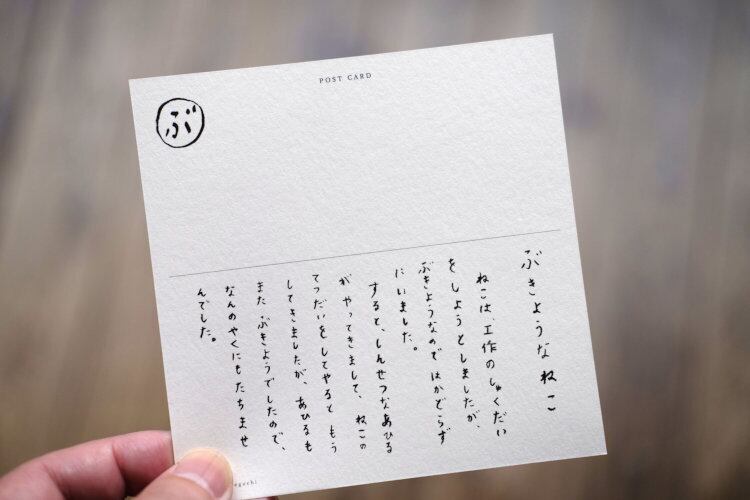 POST CARD
ぶ
ぶきような ねこ
ねこは、工作のしゅくだい
をしようとしましたが、
ぶきようなので はかどらず
にいました。
すると、しんせつなあひる
がやってきまして、ねこの
てつだいをしてやると もう
してきましたが、あひるも
また ぶきようでしたので、
なんのやくにもたちませ
んでした。